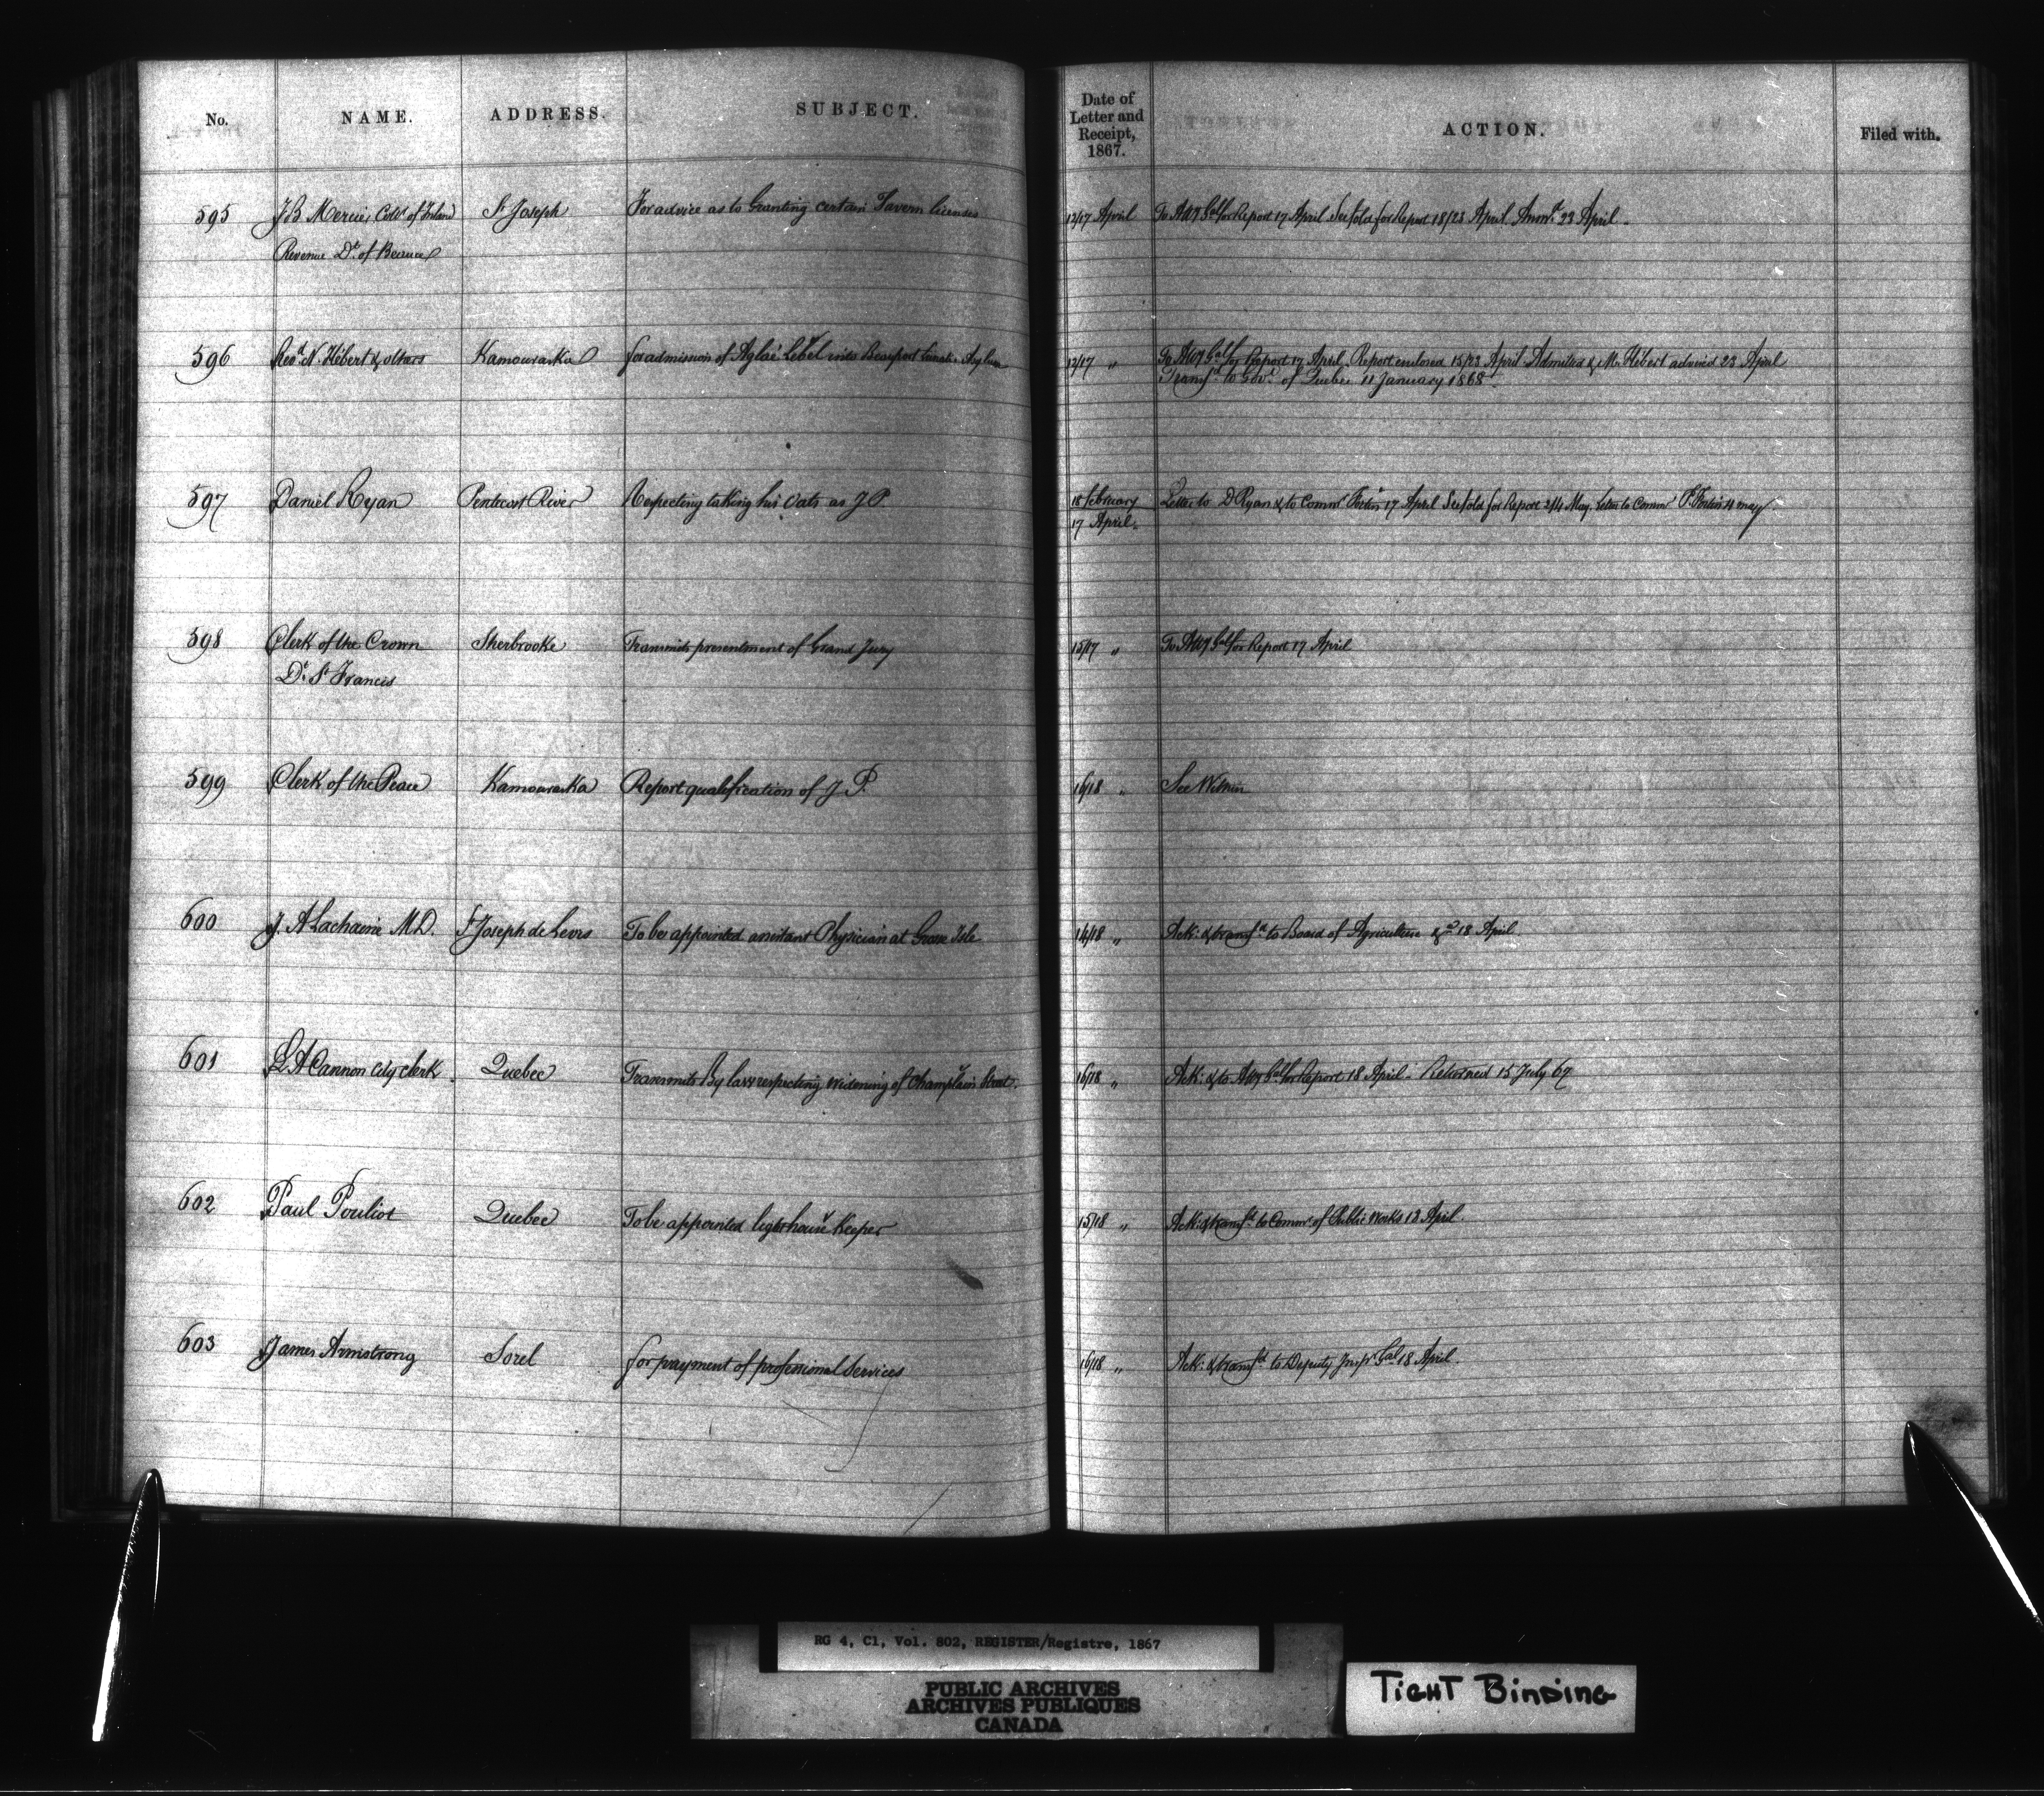 No. NAME. ADDRESS. SUBJECT. Date of Letter and Receipt, 1867. ACTION. Filed with.
595 J B Mercier, Collr of Inland St Joseph For advice as to Granting certain Tavern licenses 12/17 April To Atty Gal for Report 17 April See fold for Report 18/23 April Answd 23 April
Revenue Dt of Beauce
596 Revd N. Hébert & others Kamouraska for admission of Aglaé Lebel into Beauport Lunatic Asylum 12/17 " To Atty Gal for Report 17 April. Report enclosed 15/23 April Admitted & Mr Hébert advised 23 April
Transfd to Govt of Quebec 11 January 1868
597 Daniel Ryan Pentecost River Respecting taking his Oats as J P. 18 February Letter to D Ryan & to Commr Fortin 17 April See fold for Report 2/4 May. Letter to Commr P. Fortin 4 may
17 April
598 Clerk of the Crown Sherbrooke Transmits presentment of Grand Jury 15/17 " To Atty Gal for Report 17 April
Dt St Francis
599 Clerk of the Peace Kamouraska Report qualification of J. P. 16/18 " See Within
600 J. A Lachaine M.D. St Joseph de Levis To be appointed assistant Physician at Grosse Isle 14/18 " Ack: & transfd to Board of Agriculture &a 18 April
601 L A Cannon City clerk Quebec Transmits By law respecting widening of Champlain Street. 16/18 " Ack: & to Atty Gal for Report 18 April - Returned 15 July 67
602 Paul Pouliot Quebec To be appointed lighthouse Keeper 15/18 " Ack: & transfd to Commr of Public Works 13 April.
603 James Armstrong Sorel for payment of professional Services 16/18 " Ack: & transfd to Deputy Inspr Gal 18 April.
RG 4, C1, Vol. 802, REGISTER/Registre, 1867
PUBLIC ARCHIVES
ARCHIVES PUBLIQUES
CANADA
TIGHT BINDING